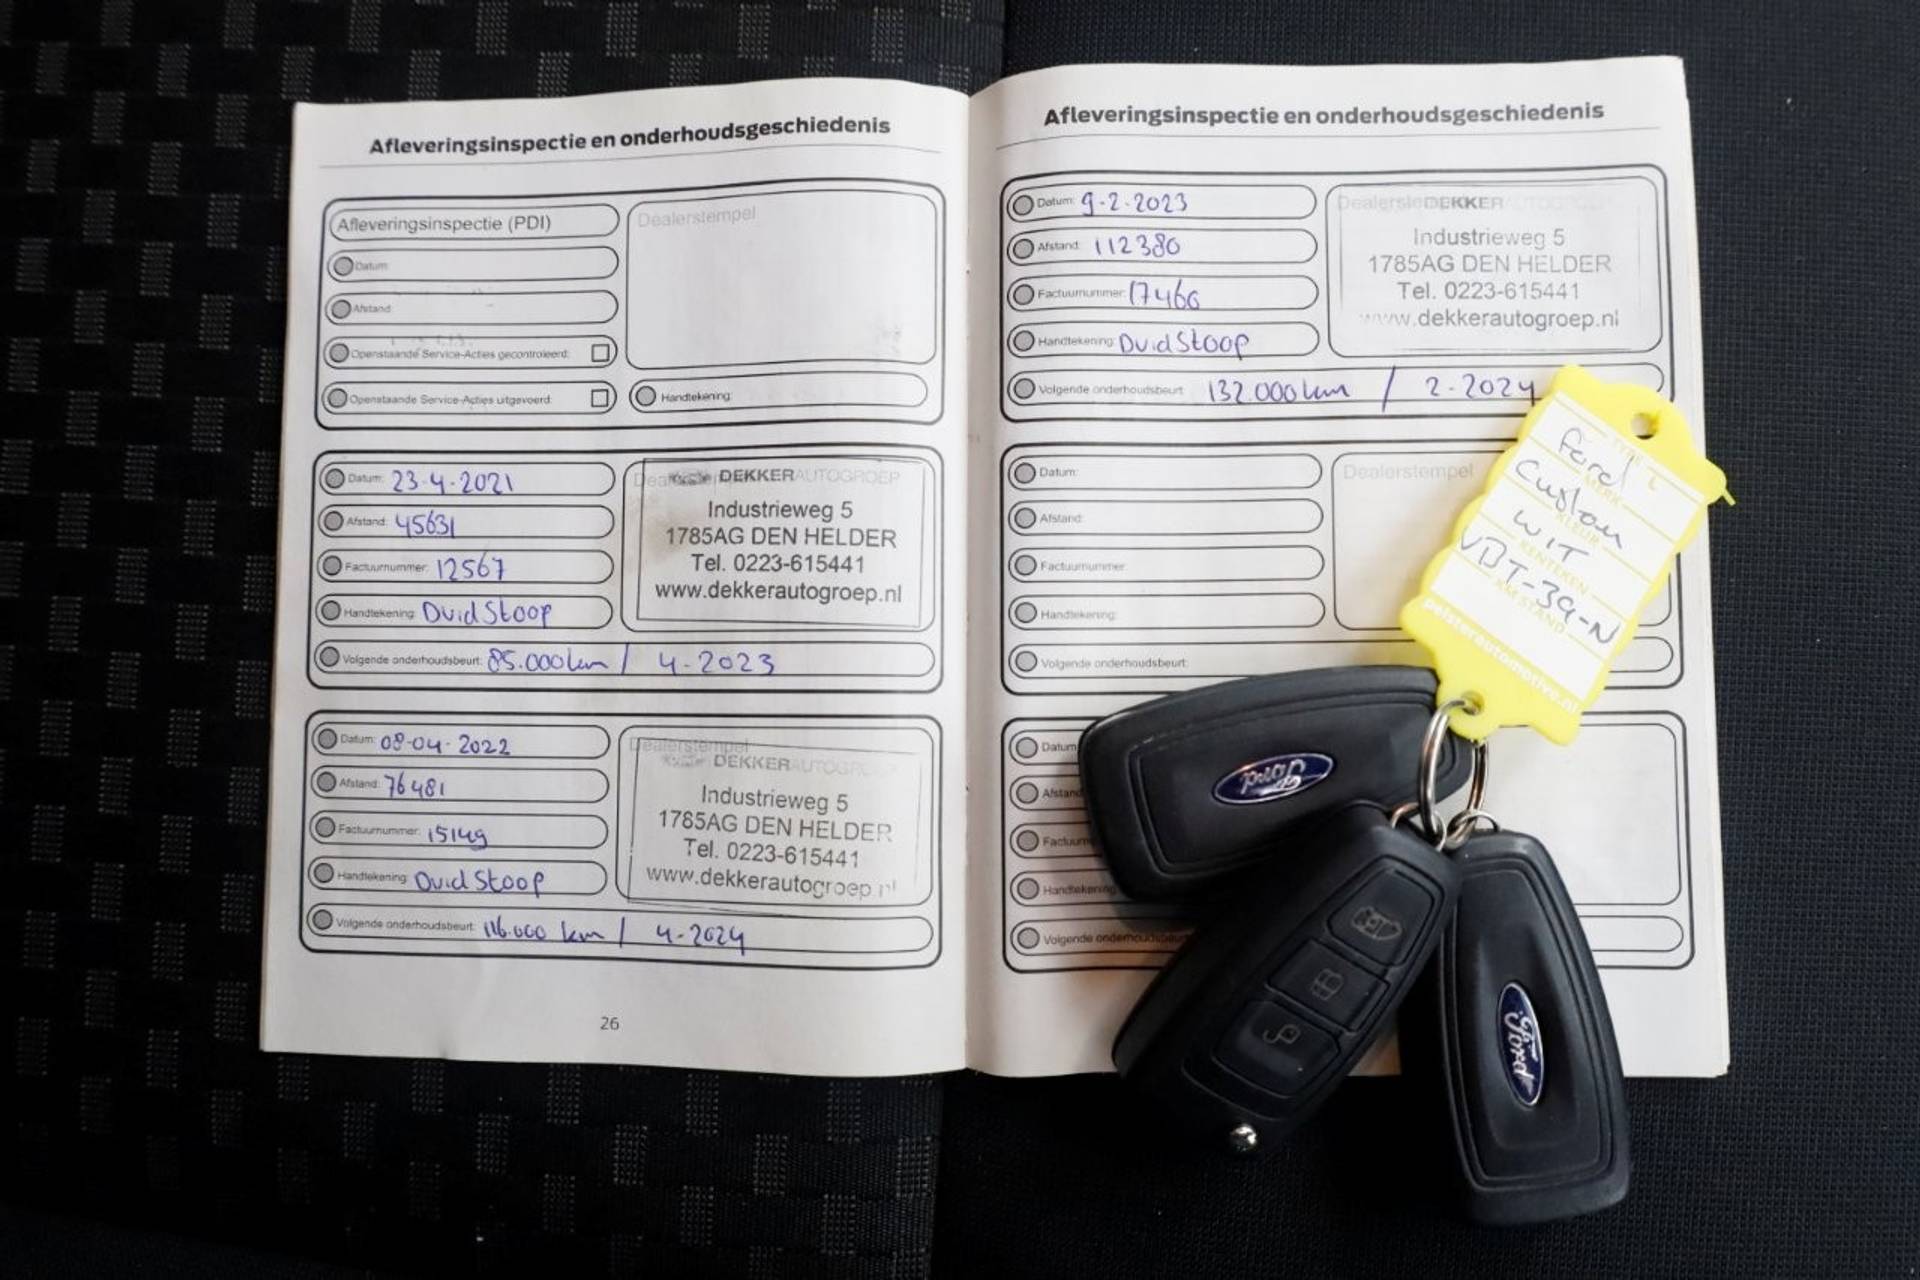 Afleveringsinspectie en onderhoudsgeschiedenis
Afleveringsinspectie (PDI)
Dealerstempel
Datum:
Afstand:
Openstaande Service-Acties gecontroleerd:
Openstaande Service-Acties uitgevoerd:
Handtekening:
Datum: 23-4-2021
Afstand: 45631
Factuurnummer: 12567
Handtekening: Dvid Stoop
Volgende onderhoudsbeurt: 85.000 km / 4-2023
DEKKERAUTOGROEP
Industrieweg 5
1785AG DEN HELDER
Tel. 0223-615441
www.dekkerautogroep.nl
Datum: 08-04-2022
Afstand: 76481
Factuurnummer: 15149
Handtekening: Dvid Stoop
Volgende onderhoudsbeurt: 116.000 km / 4-2024
Dealerstempel
DEKKERAUTOGROEP
Industrieweg 5
1785AG DEN HELDER
Tel. 0223-615441
www.dekkerautogroep.nl
26
Afleveringsinspectie en onderhoudsgeschiedenis
Datum: 9-2-2023
Afstand: 112380
Factuurnummer: 17466
Handtekening: Dvid Stoop
Volgende onderhoudsbeurt: 132.000 km / 2-2024
DEKKERAUTOGROEP
Industrieweg 5
1785AG DEN HELDER
Tel. 0223-615441
www.dekkerautogroep.nl
Datum:
Afstand:
Factuurnummer:
Handtekening:
Volgende onderhoudsbeurt:
Dealerstempel
Datum
Afstand
Handtekening
Volgende onderhoudsbeurt
Ford
MERK
Custom
KLEUR
WIT
KENTEKEN
VBT-39-N
KM STAND
pelsterautomotive.nl
Ford
Ford